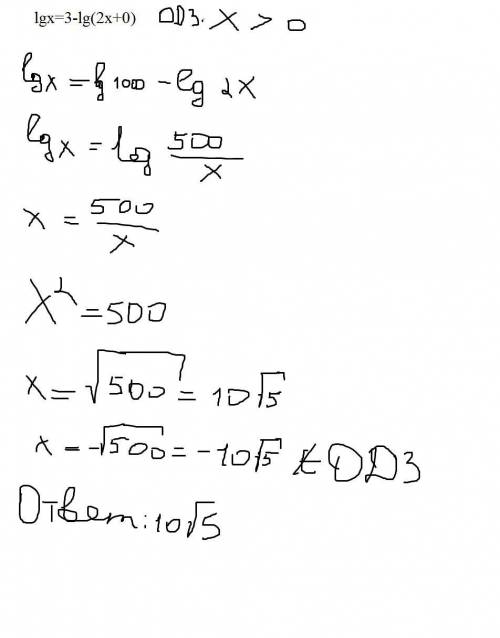 lgx=3-lg(2x+0) ОДЗ. X > 0
lg x = lg 1000 - lg 2x
lg x = log 500/x
x = 500/x
X² = 500
x = √500 = 10√5
x = -√500 = -10√5 ∉ ОДЗ
Ответ: 10√5